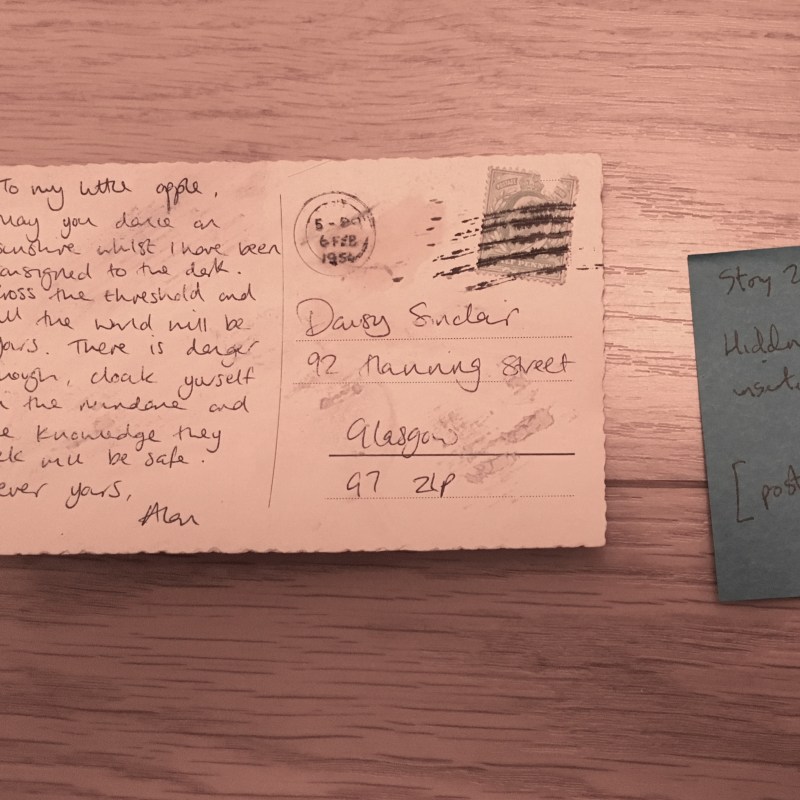 To my little apple,
may you dance in
sunshire whilst I have been
onsigned to the dark.
ross the threshold and
ll the world will be
yours. There is danger
hough, cloak yourself
n the mundane and
e knowledge they
ek will be safe.
ever yours,
Alan
6 FEB
Daisy Sinclair
92 Manning Street
Glasgow
G7 2LP
Story 2
Hidden
[post